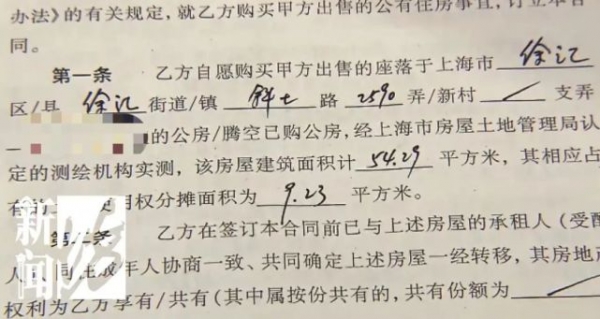 办法》的有关规定，就乙方购买甲方出售的公有住房事宜，订立本合
同。
第一条 乙方自愿购买甲方出售的座落于上海市 徐汇
区/县 徐汇 街道/镇 斜土 路 2590 弄/新村 支弄
的公房/腾空已购公房，经上海市房屋土地管理局认
定的测绘机构实测，该房屋建筑面积计 54.29 平方米，其相应占
用权分摊面积为 9.23 平方米。
条 乙方在签订本合同前已与上述房屋的承租人（受配
人 同住成年人协商一致、共同确定上述房屋一经转移，其房地产
权利为乙方享有/共有（其中属按份共有的，共有份额为
新闻